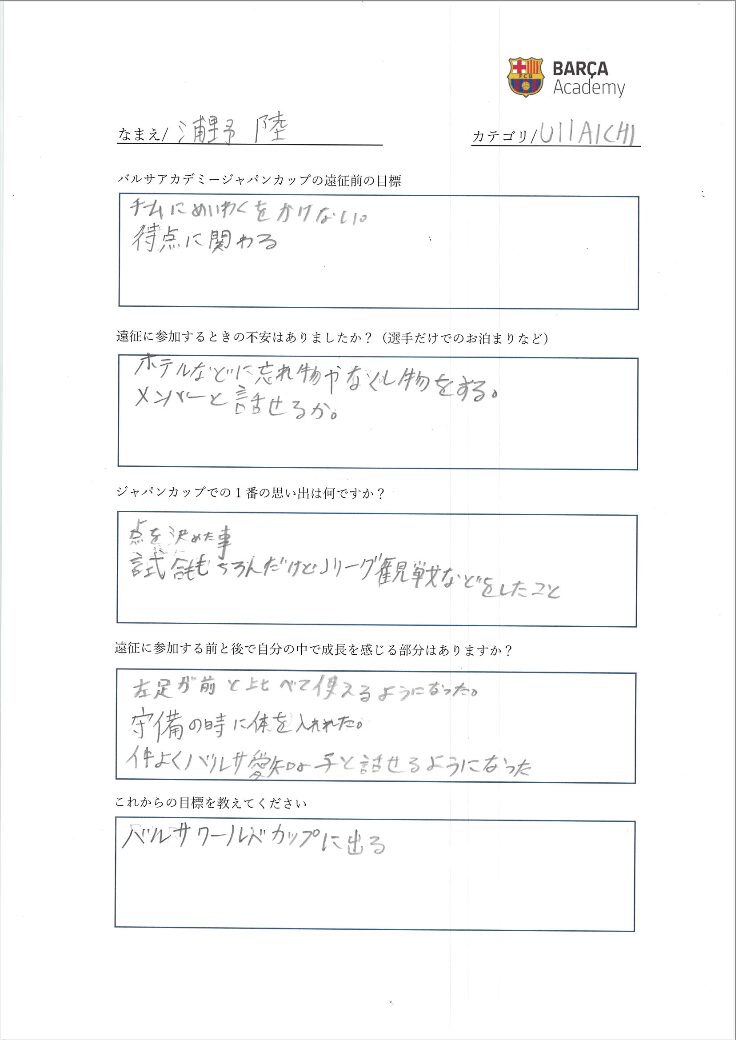 BARÇA
Academy
なまえ/ 浦野 陸
カテゴリ/U11AICHI
バルサアカデミージャパンカップの遠征前の目標
チームにめいわくをかけない。
得点に関わる
遠征に参加するときの不安はありましたか？（選手だけでのお泊まりなど）
ホテルなどに忘れ物やなくし物をする。
メンバーと話せるか。
ジャパンカップでの１番の思い出は何ですか？
点を決めた事
試合もちろんだけどJリーグ観戦などをしたこと
遠征に参加する前と後で自分の中で成長を感じる部分はありますか？
左足が前と比べて使えるようになった。
守備の時に体を入れれた。
仲よくバルサ愛知の子と話せるようになった
これからの目標を教えてください
バルサワールドカップに出る